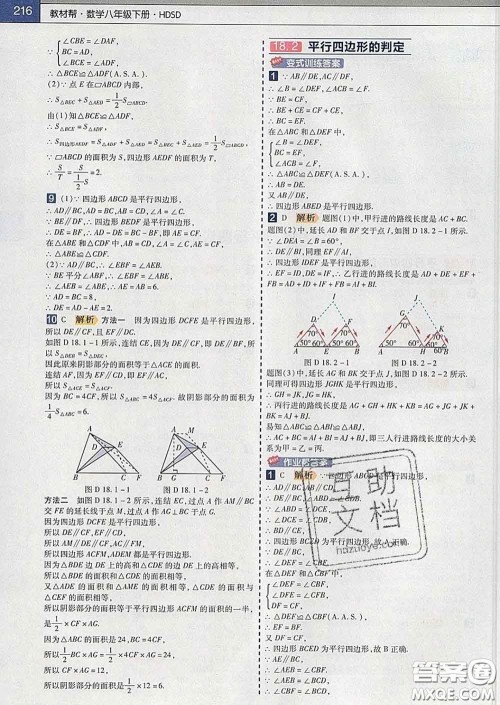 216 教材帮·数学八年级下册·HDSD
∠CBE=∠DAF,
∵ BC=AD,
∠BCE=∠ADF,
∴ △BCE≌△ADF(A.S.A.).
(2)∵ 点 E 在▱ABCD 内部,
∴ S△BEC+S△AED=1/2S▱ABCD.
由(1)知△BCE≌△ADF,
∴ S△BCE=S△ADF,
∴ S四边形AEDF=S△ADF+S△AED=S△BEC+S△AED=1/2S▱ABCD.
∵ ▱ABCD 的面积为 S,四边形 AEDF 的面积为 T,
∴ S/T=S/(1/2S)=2.
9 (1)∵ 四边形 ABCD 是平行四边形,
∴ AD∥BC,AD=BC,∠A=∠C.
∵ BE∥DF,∴ 四边形 BEDF 是平行四边形.
∴ DE=BF,∴ AD-DE=BC-BF,即 AE=CF.
在△ABE 和△CDF 中,AB=CD,∠A=∠C,AE=CF,
∴ △ABE≌△CDF.
(2)∵ AD∥BC,∴ ∠CBE=∠AEB.
∵ BE平分∠ABC,∴ ∠ABE=∠CBE,
∴ ∠ABE=∠AEB,
∴ AE=AB=6.
∵ AD=BC=8,
∴ DE=AD-AE=2.
10 C 解析 方法一 因为四边形 DCFE 是平行四边形,
所以 DE∥CF,且 EF∥DC.
如图 D 18.1-1 所示,连结 CE,因为 DE∥CF,即 DE∥BC,
所以 S△DEB=S△DEC,
因此原来阴影部分的面积等于△ACE 的面积.
连结 AF,因为 EF∥CD,即 EF∥AC,
所以 S△ACE=S△ACF.因为 BC=4CF,S△ABC=24,所以 S△ACF=
1/4S△ABC=6.故阴影部分的面积为 6.
A
D E
B C F
图 D 18.1-1
A M
D E
B G C F
图 D 18.1-2
方法二 如图 D 18.1-2 所示,连结 EC,过点 A 作 AM∥BC
交 FE 的延长线于点 M,过点 A 作 AG⊥BC 于点 G.
因为四边形 CDEF 是平行四边形,
所以 DE∥CF,EF∥CD,
所以 AM∥DE∥CF,AC∥FM,
所以四边形 ACFM,ADEM 都是平行四边形.
因为△BDE 边 DE 上的高和△CDE 的边 DE 上的高相等,
所以△BDE 的面积和△CDE 的面积相等,
又△ADE 的面积和△AME 的面积相等,△CDE 的面积与
△CEF 的面积相等,
所以阴影部分的面积等于平行四边形 ACFM 的面积的一半,
是1/2×CF×AG.
因为△ABC 的面积是 24,BC=4CF,
所以1/2BC×AG=1/2×4CF×AG=24,
所以 CF×AG=12,
所以阴影部分的面积是1/2×12=6.
18.2 平行四边形的判定
变式训练答案
1 ∵ AB∥DE,AC∥DF,
∴ ∠B=∠DEF,∠ACB=∠F.
∵ BE=CF,
∴ BE+CE=CF+CE,
∴ BC=EF.
在△ABC 和△DEF 中,
∠B=∠DEF,
BC=EF,
∠ACB=∠F,
∴ △ABC≌△DEF,
∴ AB=DE.
又 AB∥DE,
∴ 四边形 ABED 是平行四边形.
2 D 解析 题图(1)中,甲行进的路线长度是 AC+BC.
题图(2)中,延长 AD 和 BF 交于点 I,如图 D 18.2-1 所示.
∵ ∠DEA=∠B=60°,
∴ DE∥BI,同理 EF∥AI,
∴ 四边形 IDEF 是平行四边形,
∴ EF=ID,DE=IF,∴ 乙行进的路线长度是 AD+DE+EF+
FB=AD+IF+ID+FB=AI+BI.
I
D 70° F
70° 70°
50° 60° 50° 60°
A E B
图 D 18.2-1
图 D 18.2-2
题图(3)中,延长 AG 和 BK 交于点 J,如图 D 18.2-2 所示.
同理可得四边形 JGHK 是平行四边形.
∴ 丙行进的路线长度是 AG+GH+HK+KB=AG+JK+GJ+
KB=AJ+BJ.
易知△ABC≌△ABI≌△ABJ,即三人行进路线长度的大小关
系为甲=乙=丙.
作业帮答案
1 C 解析 ∵ 四边形 ABCD 是平行四边形,
∴ AD∥BC,AB∥CD,
∴ DE∥BC,∠ABD=∠CDB.
∴ ∠DEF=∠CBF.
在△DEF 和△CBF 中,
∴ △DEF≌△CBF(A.S.A.).
∴ EF=BF.
又 DF=CF,
∵ AE∥BC,
∴ ∠AEB=∠CBE.
自助文档
hazuowen.com
答案圈
MXQE.COM